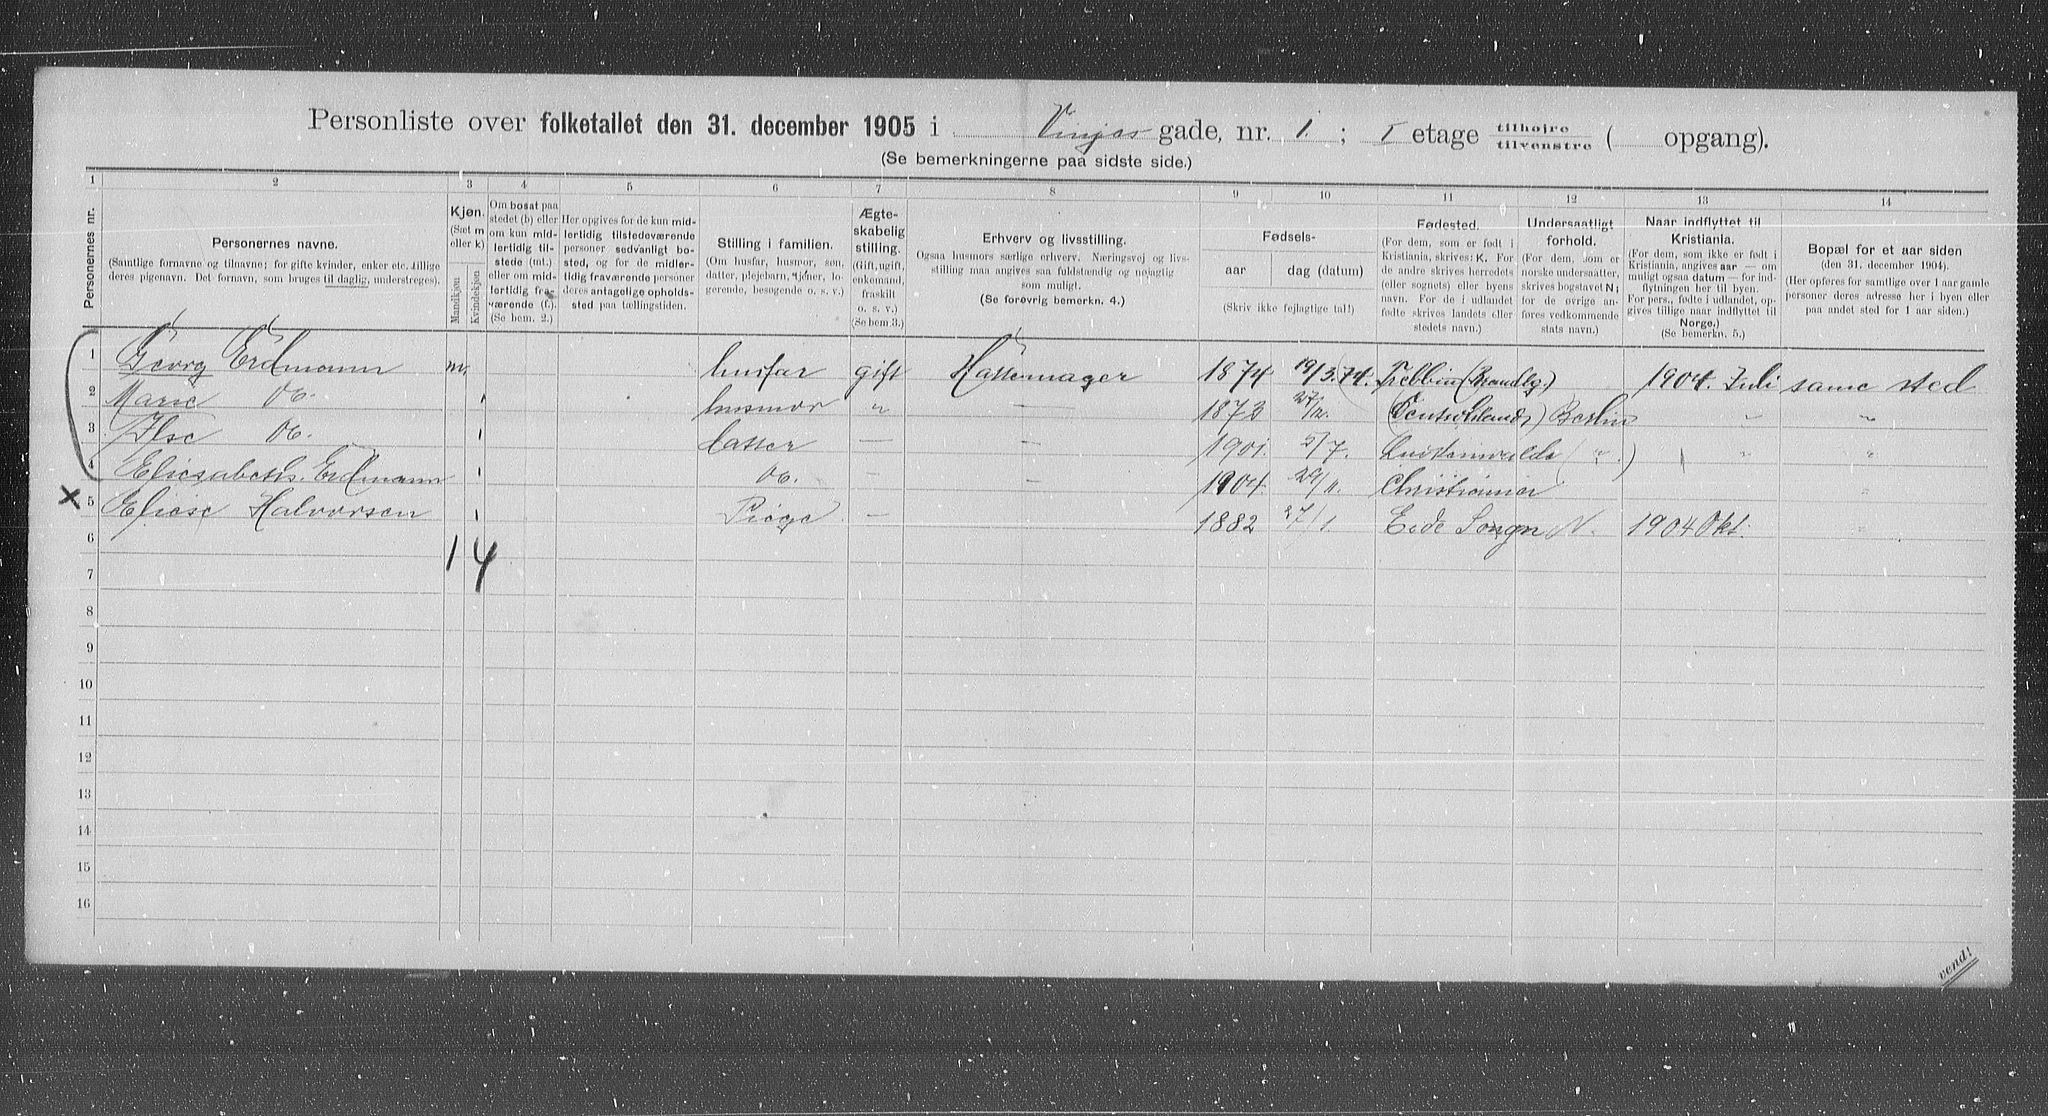 Personliste over folketallet den 31. december 1905 i Vinjes gade, nr. 1. ; I etage tilhøjre / tilvenstre ( opgang).
(Se bemerkningerne paa sidste side.)
1 2 3 4 5 6 7 8 9 10 11 12 13 14
Personernes nr.
Personernes navne.
(Samtlige fornavne og tilnavne; for gifte kvinder, enker etc. tillige
deres pigenavn. Det fornavn, som bruges til daglig, understreges).
Kjøn.
(Sæt m
eller k)
Mandkjøn
Kvindekjøn
Om bosat paa
stedet (b) eller
om kun mid-
lertidig til-
stede (mt.)
eller om mid-
lertidig fra-
værende (f.)
(Se bem. 2.)
Her opgives for de kun mid-
lertidig tilstedeværende
personer sedvanligt bo-
sted, og for de midler-
tidig fraværende personer
deres antagelige opholds-
sted paa tællingstiden.
Stilling i familien.
(Om husfar, husmor, søn,
datter, plejebarn, tjener, lo-
gerende, besøgende o. s. v.)
Ægte-
skabelig
stilling.
(Gift, ugift,
enkemand,
fraskilt
o. s. v.)
(Se bem. 3.)
Erhverv og livsstilling.
Ogsaa husmors særlige erhverv. Næringsvej og livs-
stilling maa angives saa fuldstændig og nøjagtig
som muligt.
(Se forøvrig bemerkn. 4.)
Fødsels-
aar dag (datum)
(Skriv ikke fejlagtige tal!)
Fødested.
(For dem, som er født i
Kristiania, skrives: K. For
de andre skrives herredets
(eller sognets) eller byens
navn. For de i udlandet
fødte skrives landets eller
stedets navn.)
Undersaatligt
forhold.
(For dem, som er
norske undersaatter,
skrives bogstavet N;
for de øvrige an-
føres vedkommende
stats navn.)
Naar indflyttet til
Kristiania.
(For dem, som ikke er født i
Kristiania, angives aar — om
muligt ogsaa datum — for ind-
flytningen her til byen.
For pers., fødte i udlandet, op-
gives tillige naar indflyttet til
Norge.)
(Se bemerkn. 5.)
Bopæl for et aar siden
(den 31. december 1904.)
(Her opføres for samtlige over 1 aar gamle
personer deres adresse her i byen eller
paa andet sted for 1 aar siden.)
1 Georg Erdmann m. husfar gift Hattemager 1874 19/3.74. Trebbin (Brandbg.) 1904. Juli same sted
2 Marie do. 1 husmor " — 1873 27/11. (Deutschlands) Berlin " "
3 Ilse do. 1 datter — — 1901. 5/7. Luckenwalde ( " ) " "
4 Eliesabeth. Erdmann 1 do. — — 1904. 29/11. Christiania "
X 5 Eliese Halvorsen 1 Piege — 1882 27/1. Eide Songn N. 1904 Okt. "
6 1 4
7
8
9
10
11
12
13
14
15
16
vend!